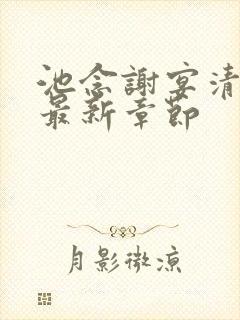 池念謝宴清
最新章節
月影微涼